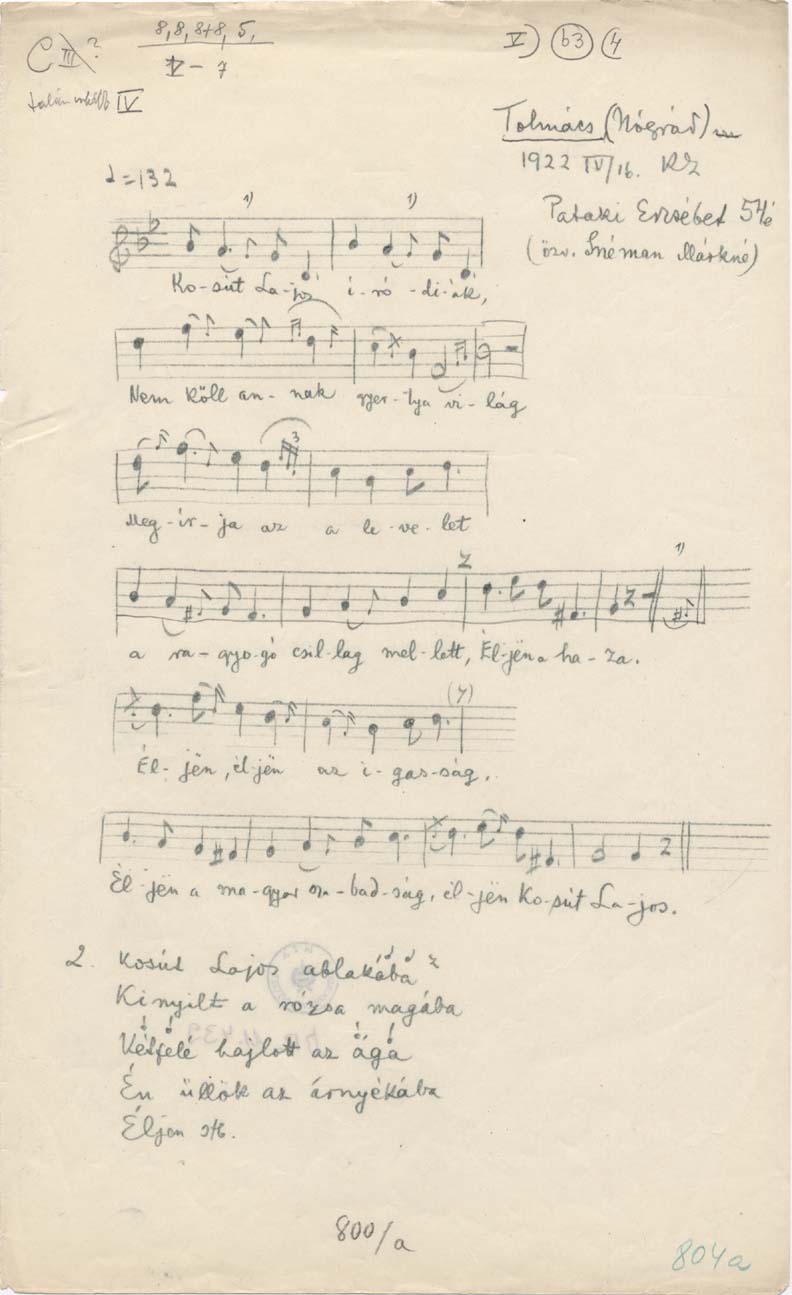 C III ?
8, 8, 8+8, 5,
V – 7
V) (b3) (4
IV
Tolmács (Nógrád)
1922 IV/16. KZ
♩=132
Pataki Erzsébet 54é
(özv. Snéman Márkné)
1) 1)
Ko-sút La-jos í-ró-di-ák,
Nem köll an-nak gyer-tya vi-lág
3
Meg-ír-ja az a le-ve-let
1)
a ra-gyo-gó csil-lag mel-lett, Él-jën a ha-za.
Él-jën, él-jën az i-gas-ság,
Él-jën a ma-gyar sza-bad-ság, él-jën Ko-sút La-jos.
2. Kosút Lajos ablakába
Kinyilt a rózsa magába
Kétfelé hajlott az ága
Én üllök az árnyékába
Éljen stb.
800/a
804a